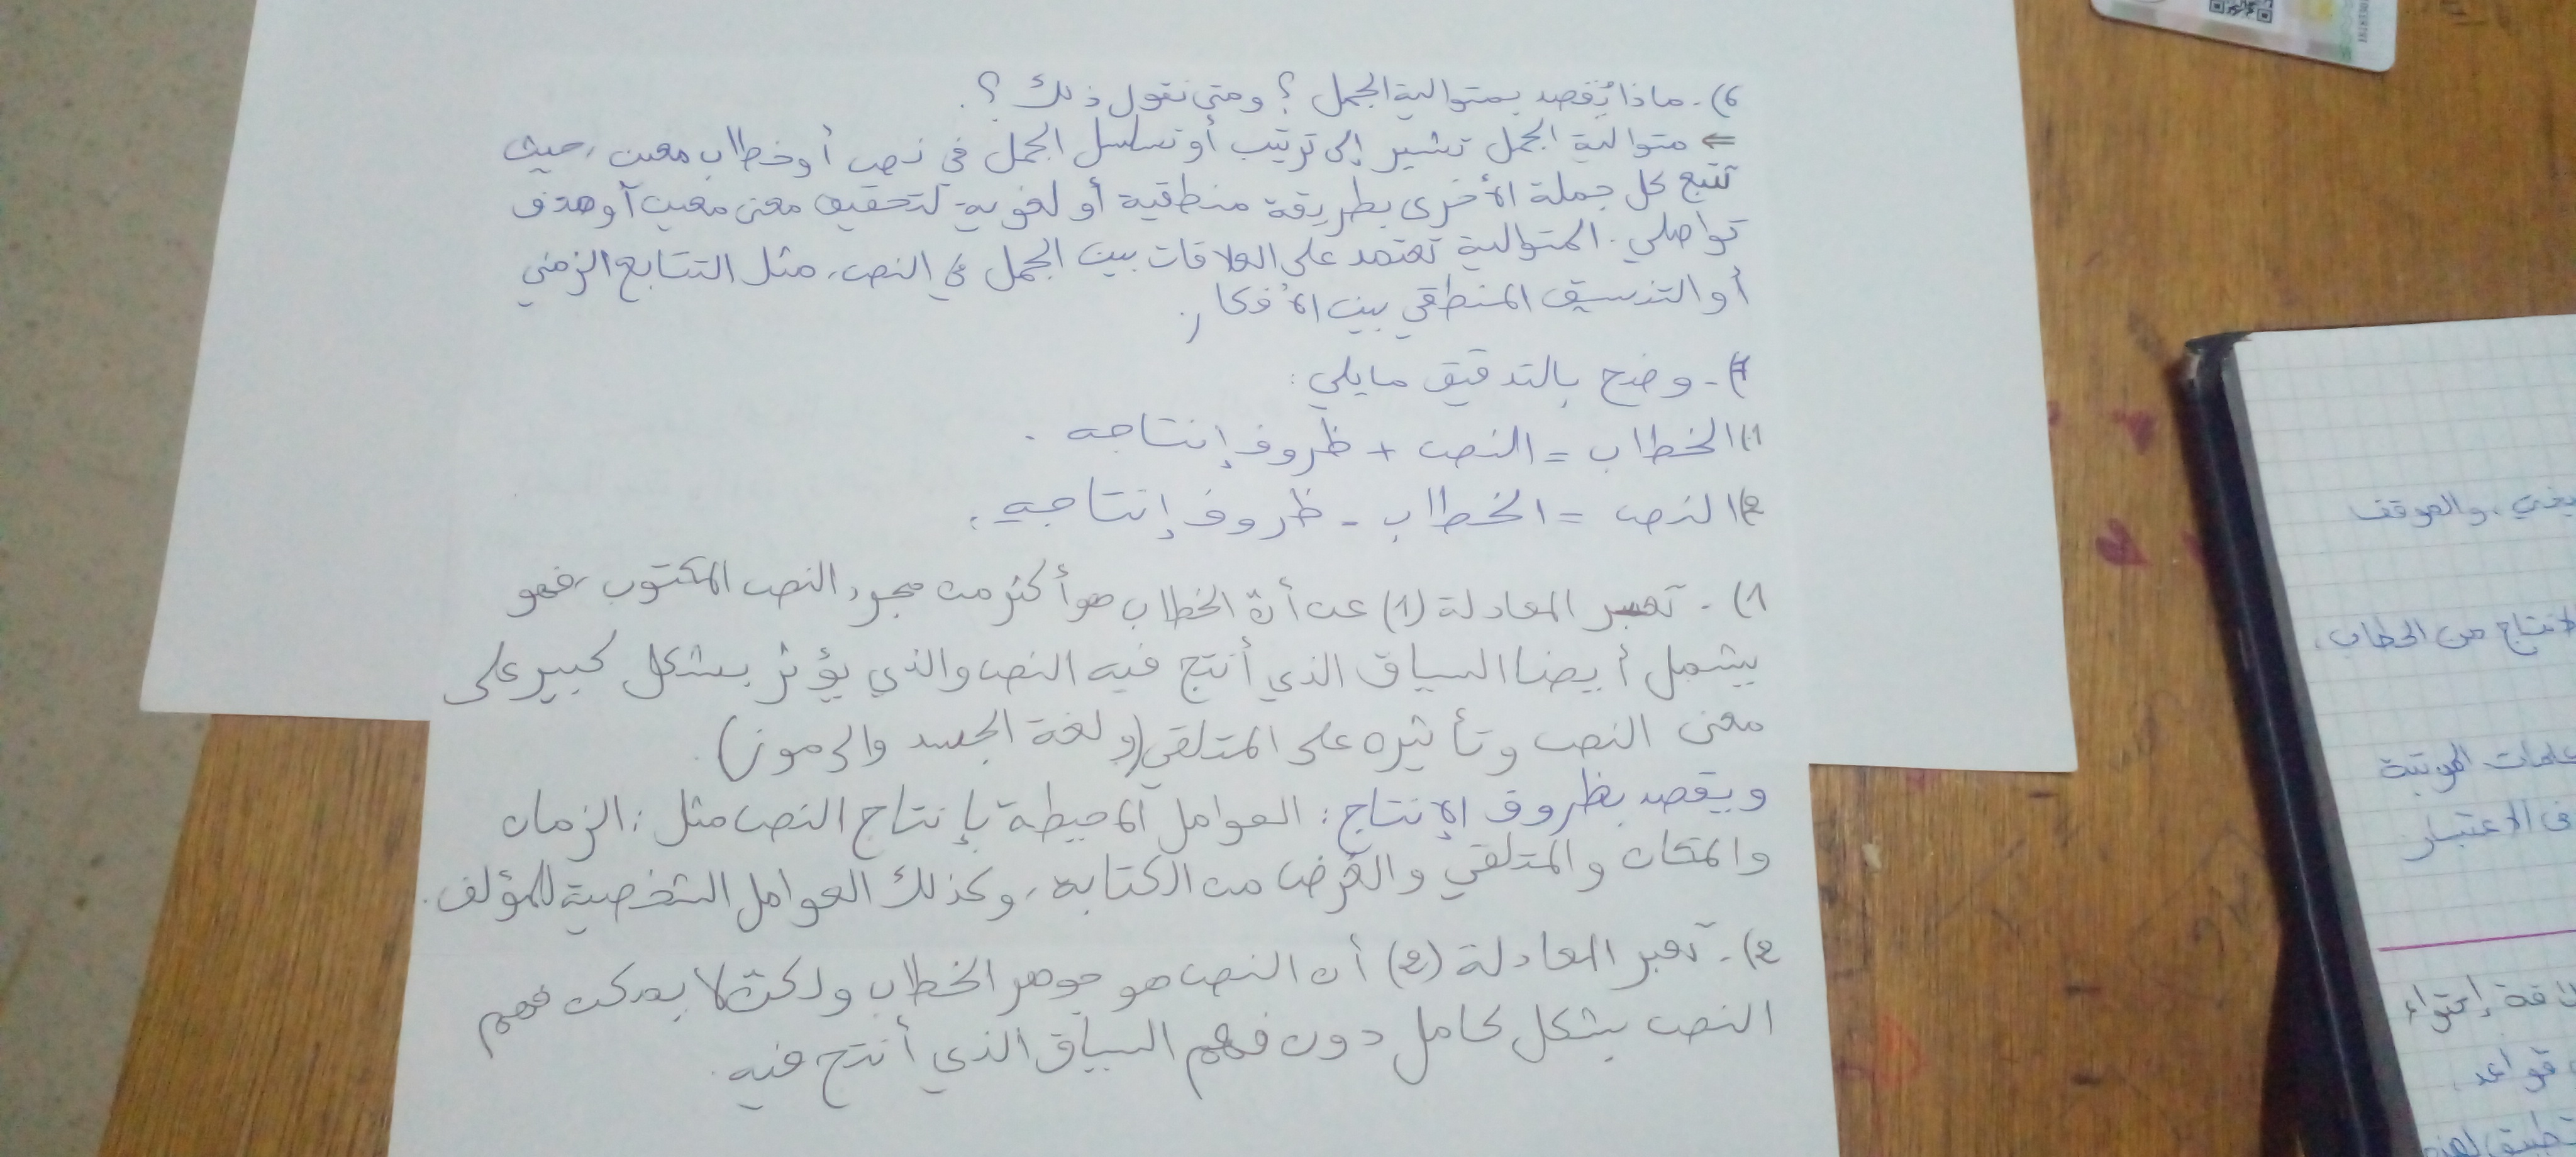 6)- ماذا يُقصد بمتوالية الجمل ؟ ومتى نقول ذلك ؟.
⇐ متوالية الجمل تشير إلى ترتيب أو تسلسل الجمل في نص أو خطاب معين، حيث
تتبع كل جملة الأخرى بطريقة منطقية أو لغوية لتحقيق معنى معين أو هدف
تواصلي. المتوالية تعتمد على العلاقات بين الجمل في النص، مثل التتابع الزمني
أو التنسيق المنطقي بين الأفكار.
7)- وضح بالتدقيق مايلي:
1) الخطاب = النص + ظروف إنتاجه.
2) النص = الخطاب - ظروف إنتاجه.
1)- تعبر المعادلة (1) عن أنّ الخطاب هو أكثر من مجرد النص المكتوب، فهو
يشمل أيضا السياق الذي أنتج فيه النص والذي يؤثر بشكل كبير على
معنى النص وتأثيره على المتلقي (ولغة الجسد والرموز).
ويقصد بظروف الإنتاج: العوامل المحيطة بإنتاج النص مثل: الزمان
والمكان والمتلقي والغرض من الكتابة، وكذلك العوامل الشخصية للمؤلف.
2)- تعبر المعادلة (2) أن النص هو جوهر الخطاب ولكن لا يمكن فهم
النص بشكل كامل دون فهم السياق الذي أنتج فيه.
والموقف
من الخطاب.
في الاعتبار
إحتواء
قواعد